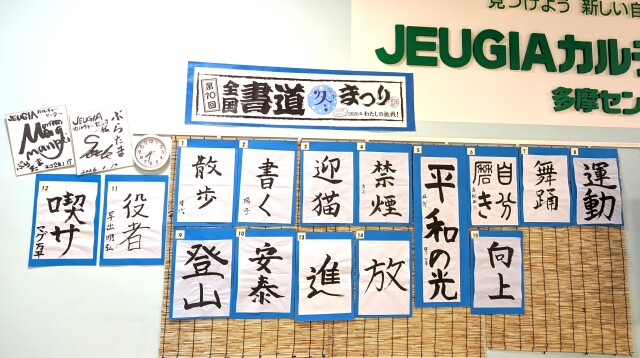 見つけよう 新しい自
JEUGIAカル
多摩セン
第10回
全国書道まつり
わたしの挑戦!
JEUGIA カルチャーセンター
JEUGIA
ぶらたま
1
散歩
2
書く
陽子
3
迎猫
4
禁煙
5
平和の光
6
自分磨き
7
舞踊
8
運動
12
喫サ
11
役者
9
登山
10
安泰
13
進
14
放
15
向上